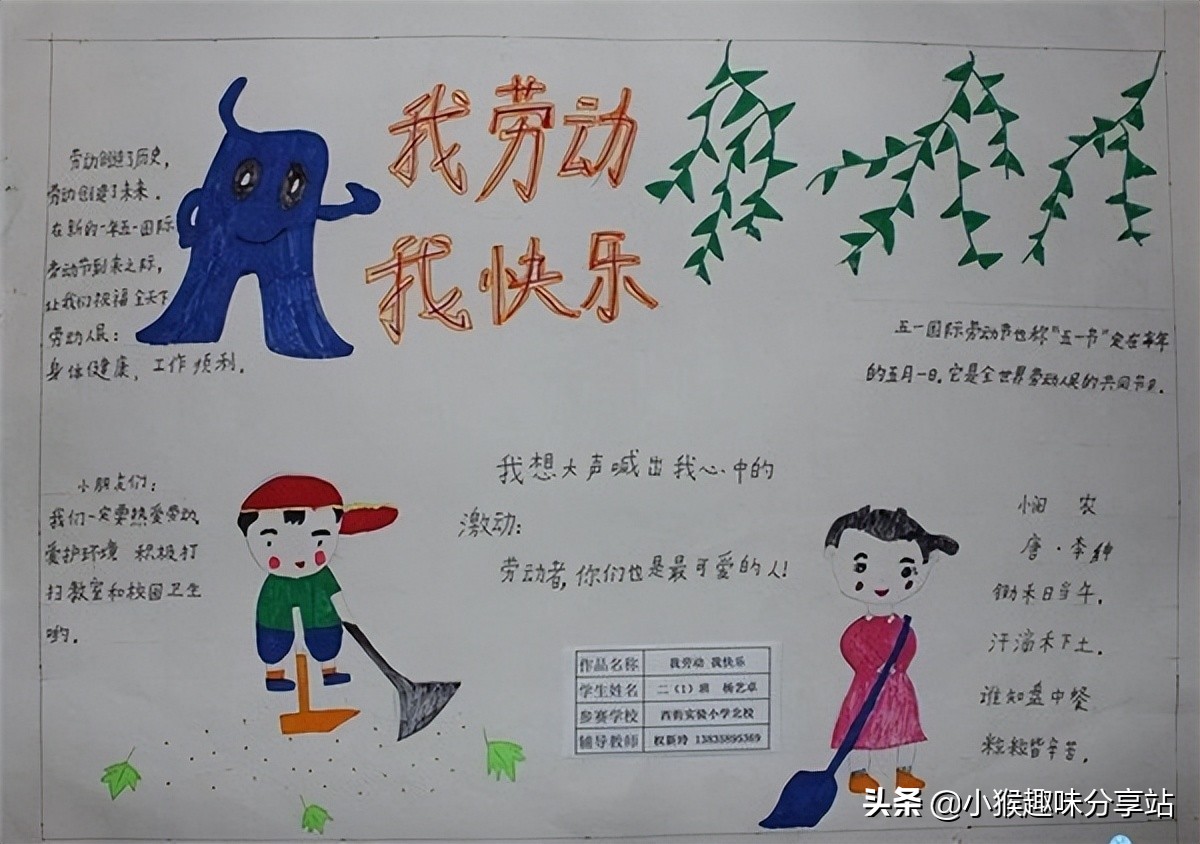 我劳动
我快乐
劳动创造了历史，
劳动创造了未来．
在新的一年五一国际
劳动节到来之际，
让我们祝福全天下
劳动人民：
身体健康，工作顺利．
五一国际劳动节也称“五一节”定在每年
的五月一日．它是全世界劳动人民的共同节日．
小朋友们：
我们一定要热爱劳动，
爱护环境 积极打
扫教室和校园卫生
哟．
我想大声喊出我心中的
激动：
劳动者，你们也是最可爱的人！
悯 农
唐·李绅
锄禾日当午，
汗滴禾下土．
谁知盘中餐
粒粒皆辛苦．
作品名称 我劳动 我快乐
学生姓名 二（1）班 杨艺卓
参赛学校 西街实验小学北校
辅导教师 权新玲 13835895369
头条 @小猴趣味分享站